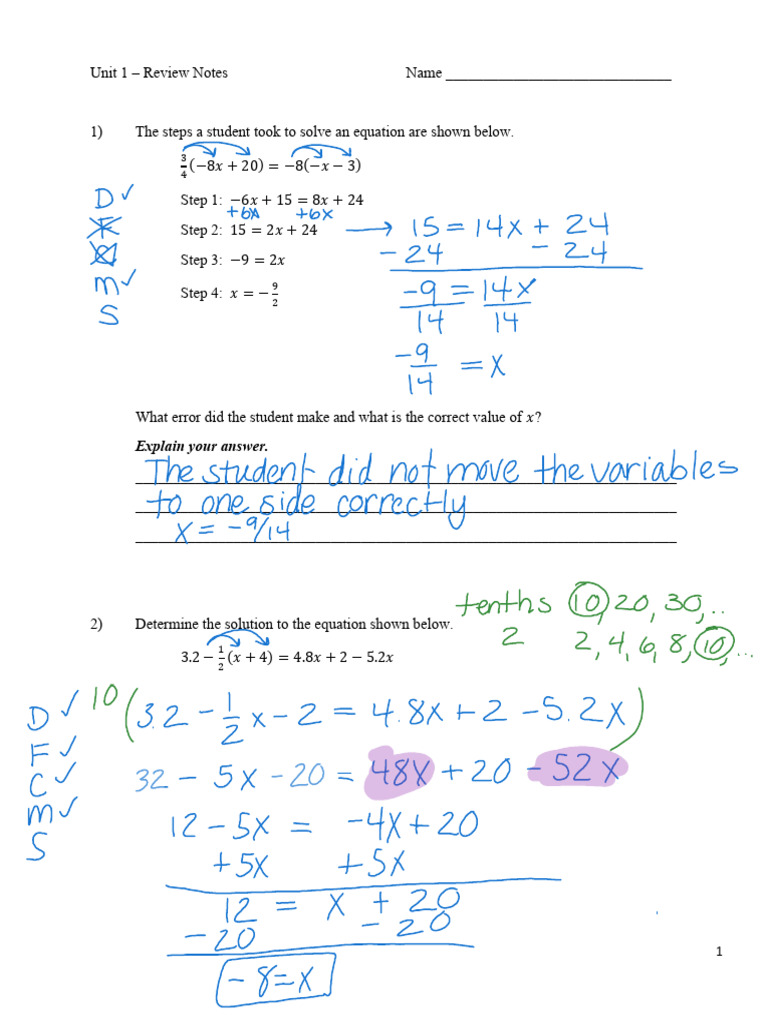 Unit 1 – Review Notes Name ____________________________
1) The steps a student took to solve an equation are shown below.
3/4(−8x + 20) = −8(−x − 3)
D✓ Step 1: −6x + 15 = 8x + 24
+6x +6x
F Step 2: 15 = 2x + 24 → 15 = 14x + 24
− 24 − 24
C Step 3: −9 = 2x
M✓ Step 4: x = −9/2 −9/14 = 14x/14
S
−9/14 = x
What error did the student make and what is the correct value of x?
Explain your answer.
The student did not move the variables
to one side correctly
x = −9/14
tenths 10, 20, 30, ..
2 2, 4, 6, 8, 10, ...
2) Determine the solution to the equation shown below.
3.2 − 1/2(x + 4) = 4.8x + 2 − 5.2x
D✓ 10(3.2 − 1/2x − 2 = 4.8x + 2 − 5.2x)
F✓
C✓ 32 − 5x − 20 = 48x + 20 − 52x
M✓ 12 − 5x = −4x + 20
S +5x +5x
12 = x + 20
− 20 − 20
−8 = x
1